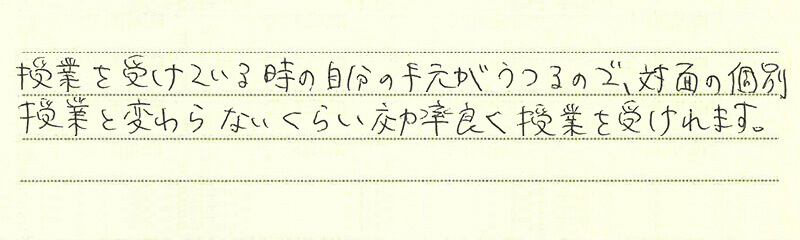 授業を受けている時の自分の手元がうつるので、対面の個別
授業と変わらないくらい効率良く授業を受けれます。